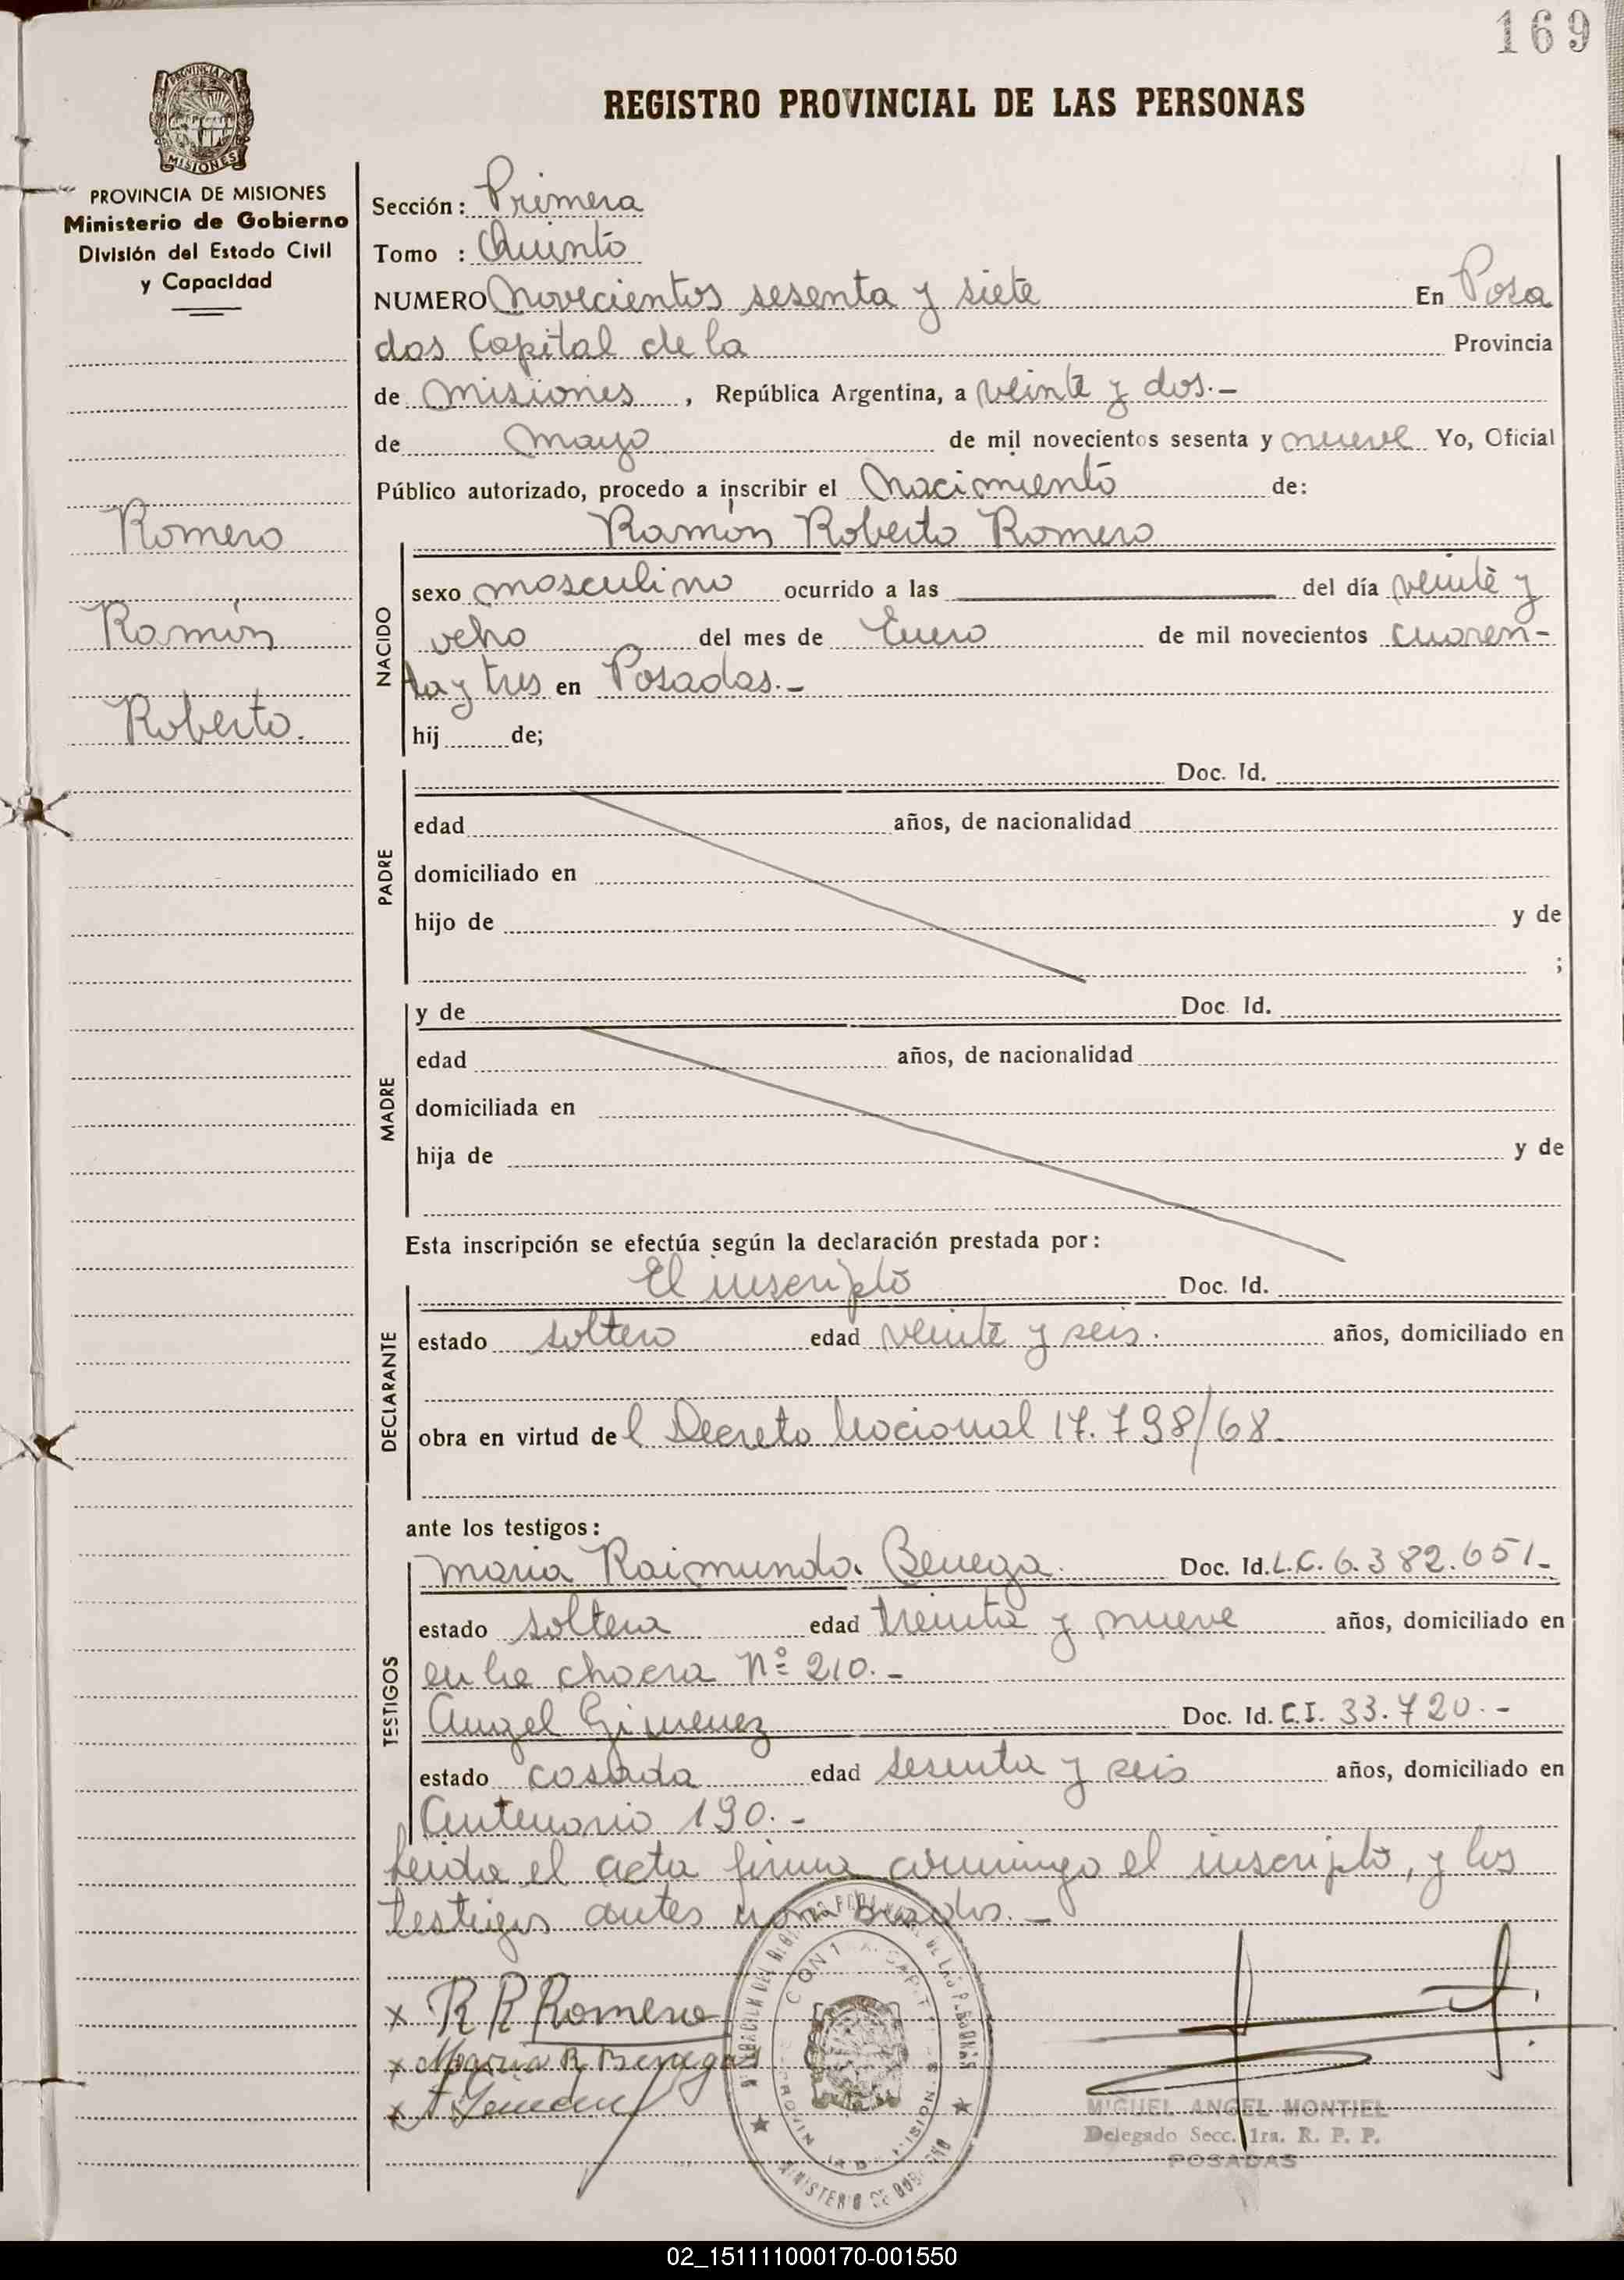 169
REGISTRO PROVINCIAL DE LAS PERSONAS
MISIONES
PROVINCIA DE MISIONES
Ministerio de Gobierno
División del Estado Civil
y Capacidad
Romero
Ramón
Roberto.
Sección: Primera
Tomo : Quinto
NUMERO Novecientos sesenta y siete En Posa
das Capital de la Provincia
de Misiones, República Argentina, a veinte y dos.-
de Mayo de mil novecientos sesenta y nueve Yo, Oficial
Público autorizado, procedo a inscribir el Nacimiento de:
NACIDO
Ramón Roberto Romero
sexo masculino ocurrido a las del día veinte y
ocho del mes de Enero de mil novecientos cuaren-
ta y tres en Posadas.-
hij de;
PADRE
Doc. Id.
edad años, de nacionalidad
domiciliado en
hijo de y de
;
MADRE
y de Doc. Id.
edad años, de nacionalidad
domiciliada en
hija de y de
Esta inscripción se efectúa según la declaración prestada por:
DECLARANTE
El inscripto Doc. Id.
estado soltero edad veinte y seis. años, domiciliado en
obra en virtud del Decreto Nacional 17.798/68.
ante los testigos:
TESTIGOS
Maria Raimunda Benega. Doc. Id. L.C. 6.382.651.-
estado soltera edad treinta y nueve años, domiciliado en
chacra Nº 210.-
Angel Gimenez Doc. Id. C.I. 33.720.-
estado casada edad sesenta y seis años, domiciliado en
Centenario 190.-
Leida el acta firma conmigo el inscripto, y los
testigos antes nombrados.-
x R R Romero
x Maria R Benega
x
MINISTERIO DE GOBIERNO
MIGUEL ANGEL MONTIEL
Delegado Secc. 1ra. R. P. P.
POSADAS
02_151111000170-001550